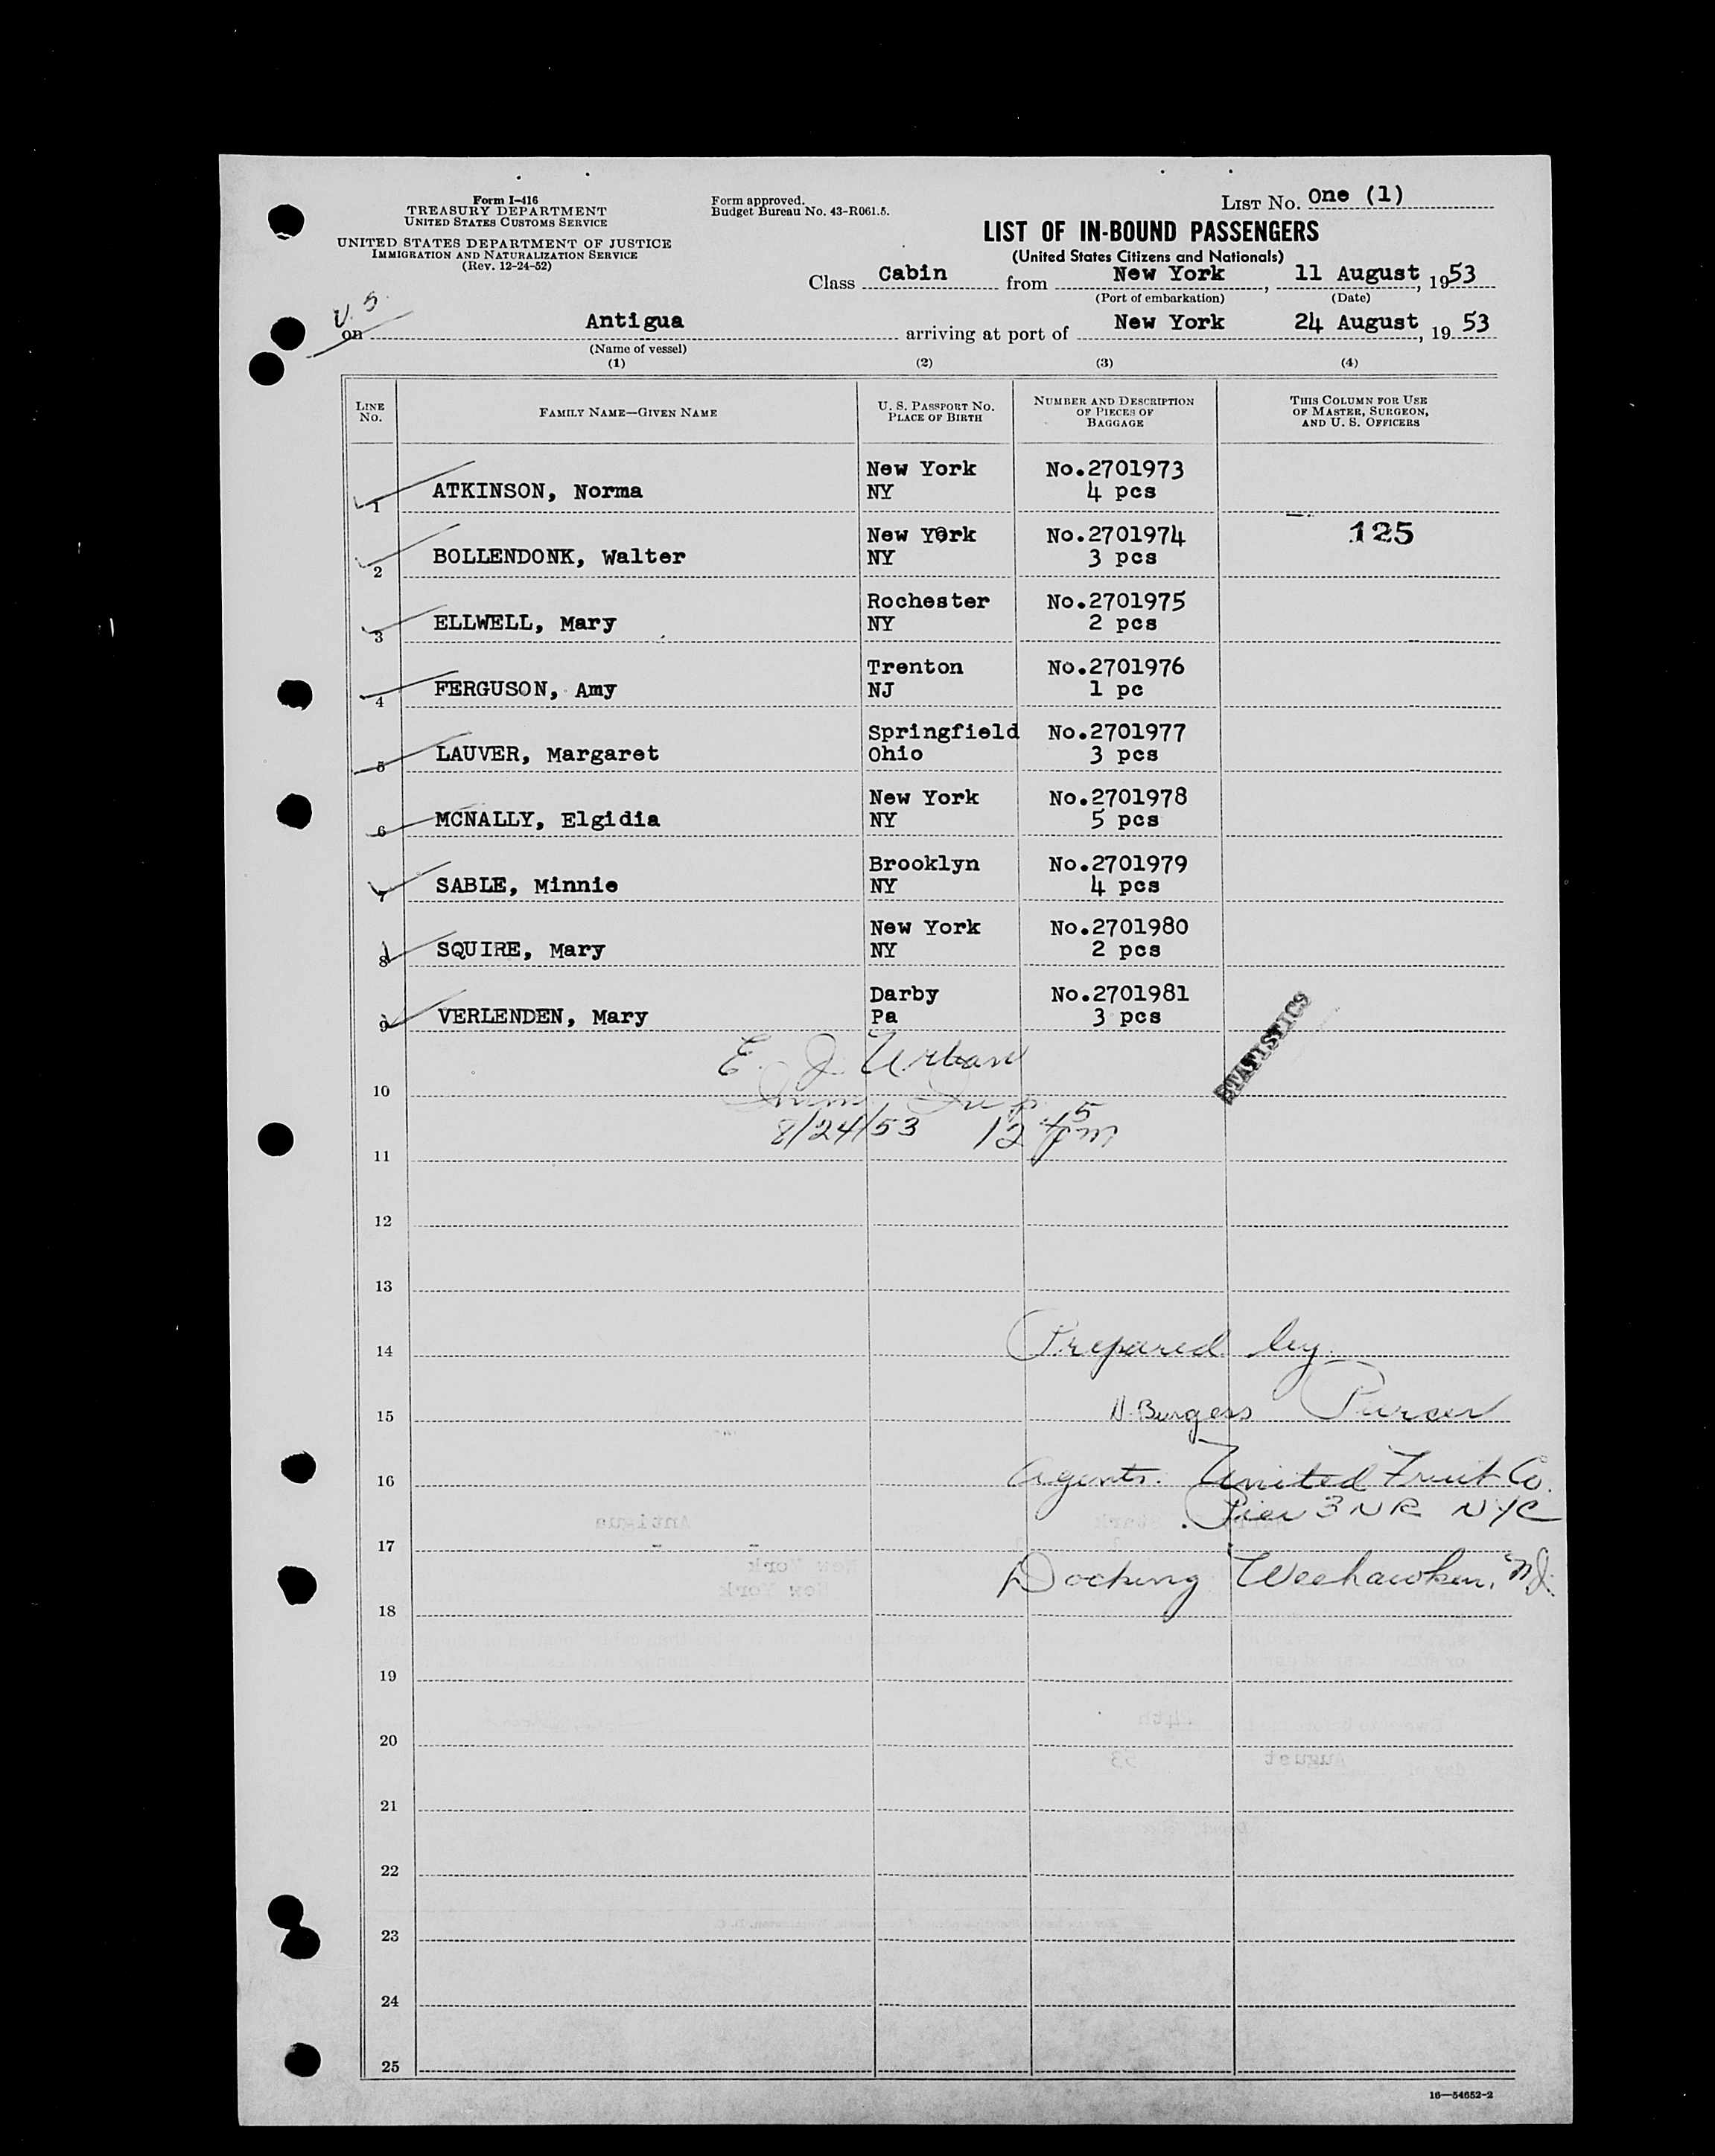 Form I-416
TREASURY DEPARTMENT
UNITED STATES CUSTOMS SERVICE
UNITED STATES DEPARTMENT OF JUSTICE
IMMIGRATION AND NATURALIZATION SERVICE
(Rev. 12-24-52)
Form approved.
Budget Bureau No. 43-R061.5.
LIST No. One (1)
LIST OF IN-BOUND PASSENGERS
(United States Citizens and Nationals)
Class Cabin from New York, 11 August, 1953
(Port of embarkation) (Date)
on Antigua arriving at port of New York 24 August, 19 53
(Name of vessel)
(1) (2) (3) (4)
LINE No. FAMILY NAME—GIVEN NAME U. S. PASSPORT No. PLACE OF BIRTH NUMBER AND DESCRIPTION OF PIECES OF BAGGAGE THIS COLUMN FOR USE OF MASTER, SURGEON, AND U. S. OFFICERS
New York No.2701973
1 ATKINSON, Norma NY 4 pcs
New York No.2701974 125
2 BOLLENDONK, Walter NY 3 pcs
Rochester No.2701975
3 ELLWELL, Mary NY 2 pcs
Trenton No.2701976
4 FERGUSON, Amy NJ 1 pc
Springfield No.2701977
5 LAUVER, Margaret Ohio 3 pcs
New York No.2701978
6 MCNALLY, Elgidia NY 5 pcs
Brooklyn No.2701979
7 SABLE, Minnie NY 4 pcs
New York No.2701980
8 SQUIRE, Mary NY 2 pcs
Darby No.2701981
9 VERLENDEN, Mary Pa 3 pcs
STATISTICS
E. J. Urban
10 Imm. Insp.
8/24/53 12 45 pm
11
12
13
14 Prepared by
15 N. Burgess Purser
16 Agents. United Fruit Co.
Pier 3 NR NYC
17
Docking Weehawken, NJ.
18
19
20
21
22
23
24
25
16—54652-2